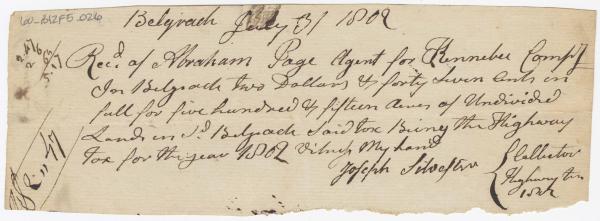 60-B12F5-026
Belgrade July 31 1802
Rec.d of Abraham Page Agent for Kennebec Comp.y
In Belgrade two Dollars & forty Seven Cents in
full for five hundred & fifteen acres of Undivided
Lands in s.d Belgrade Said tax Being the Highway
Tax for the year 1802 Witness My hand
Joseph Silvester
Collector
Highway tax
2.47
2.6